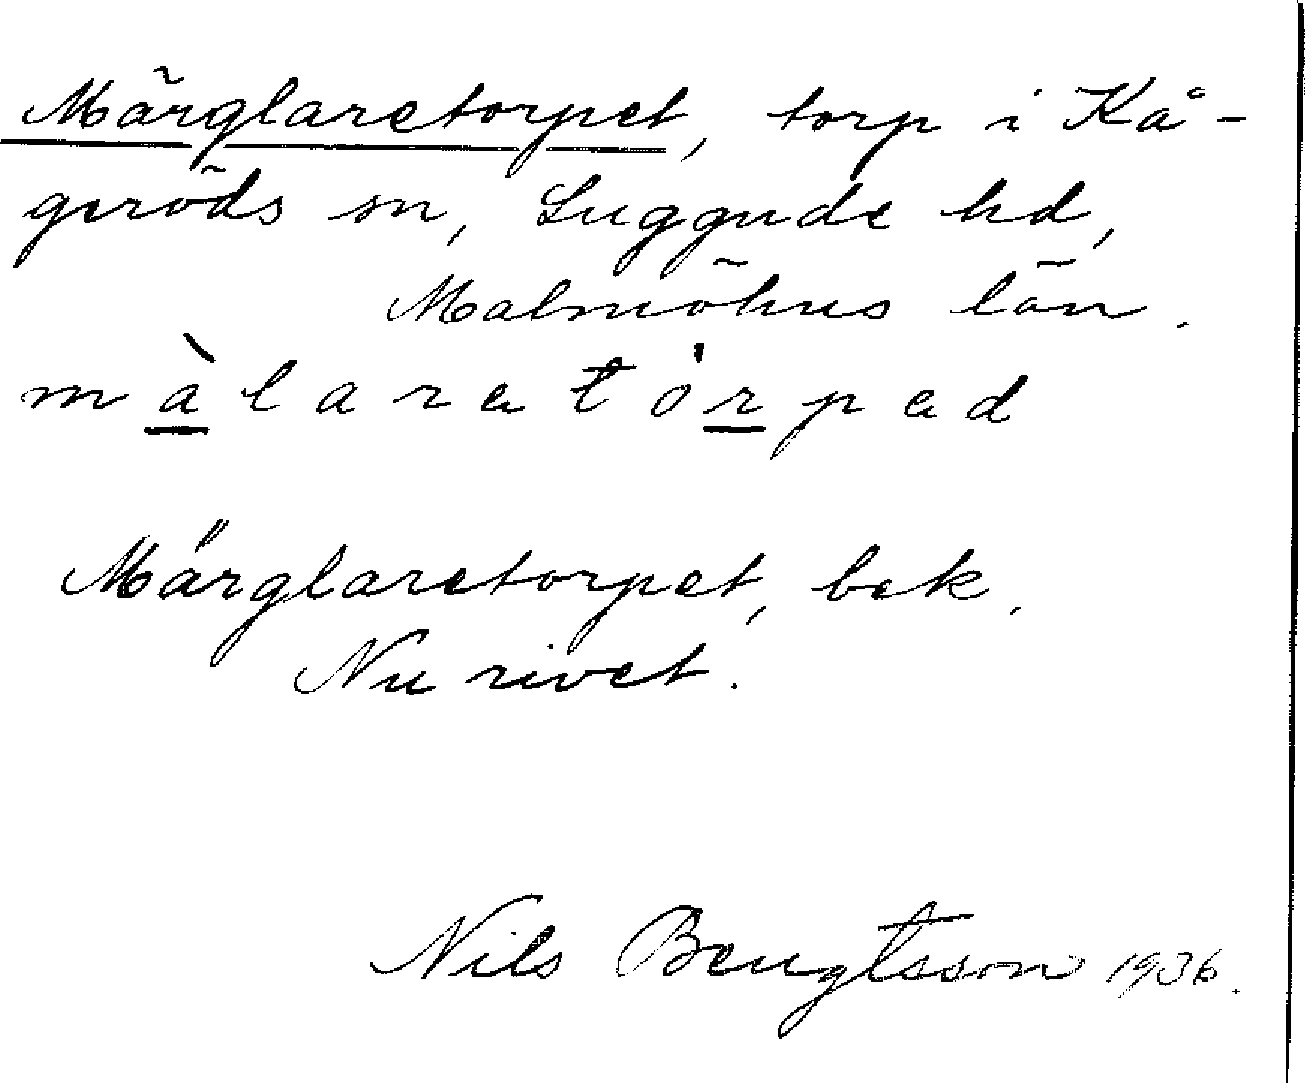 Märglaretorpet, torp i Kå-
geröds sn, Luggude hd,
Malmöhus län.
màlaretórped
Märglaretorpet, bek.
Nu rivet.
Nils Bengtsson 1936.